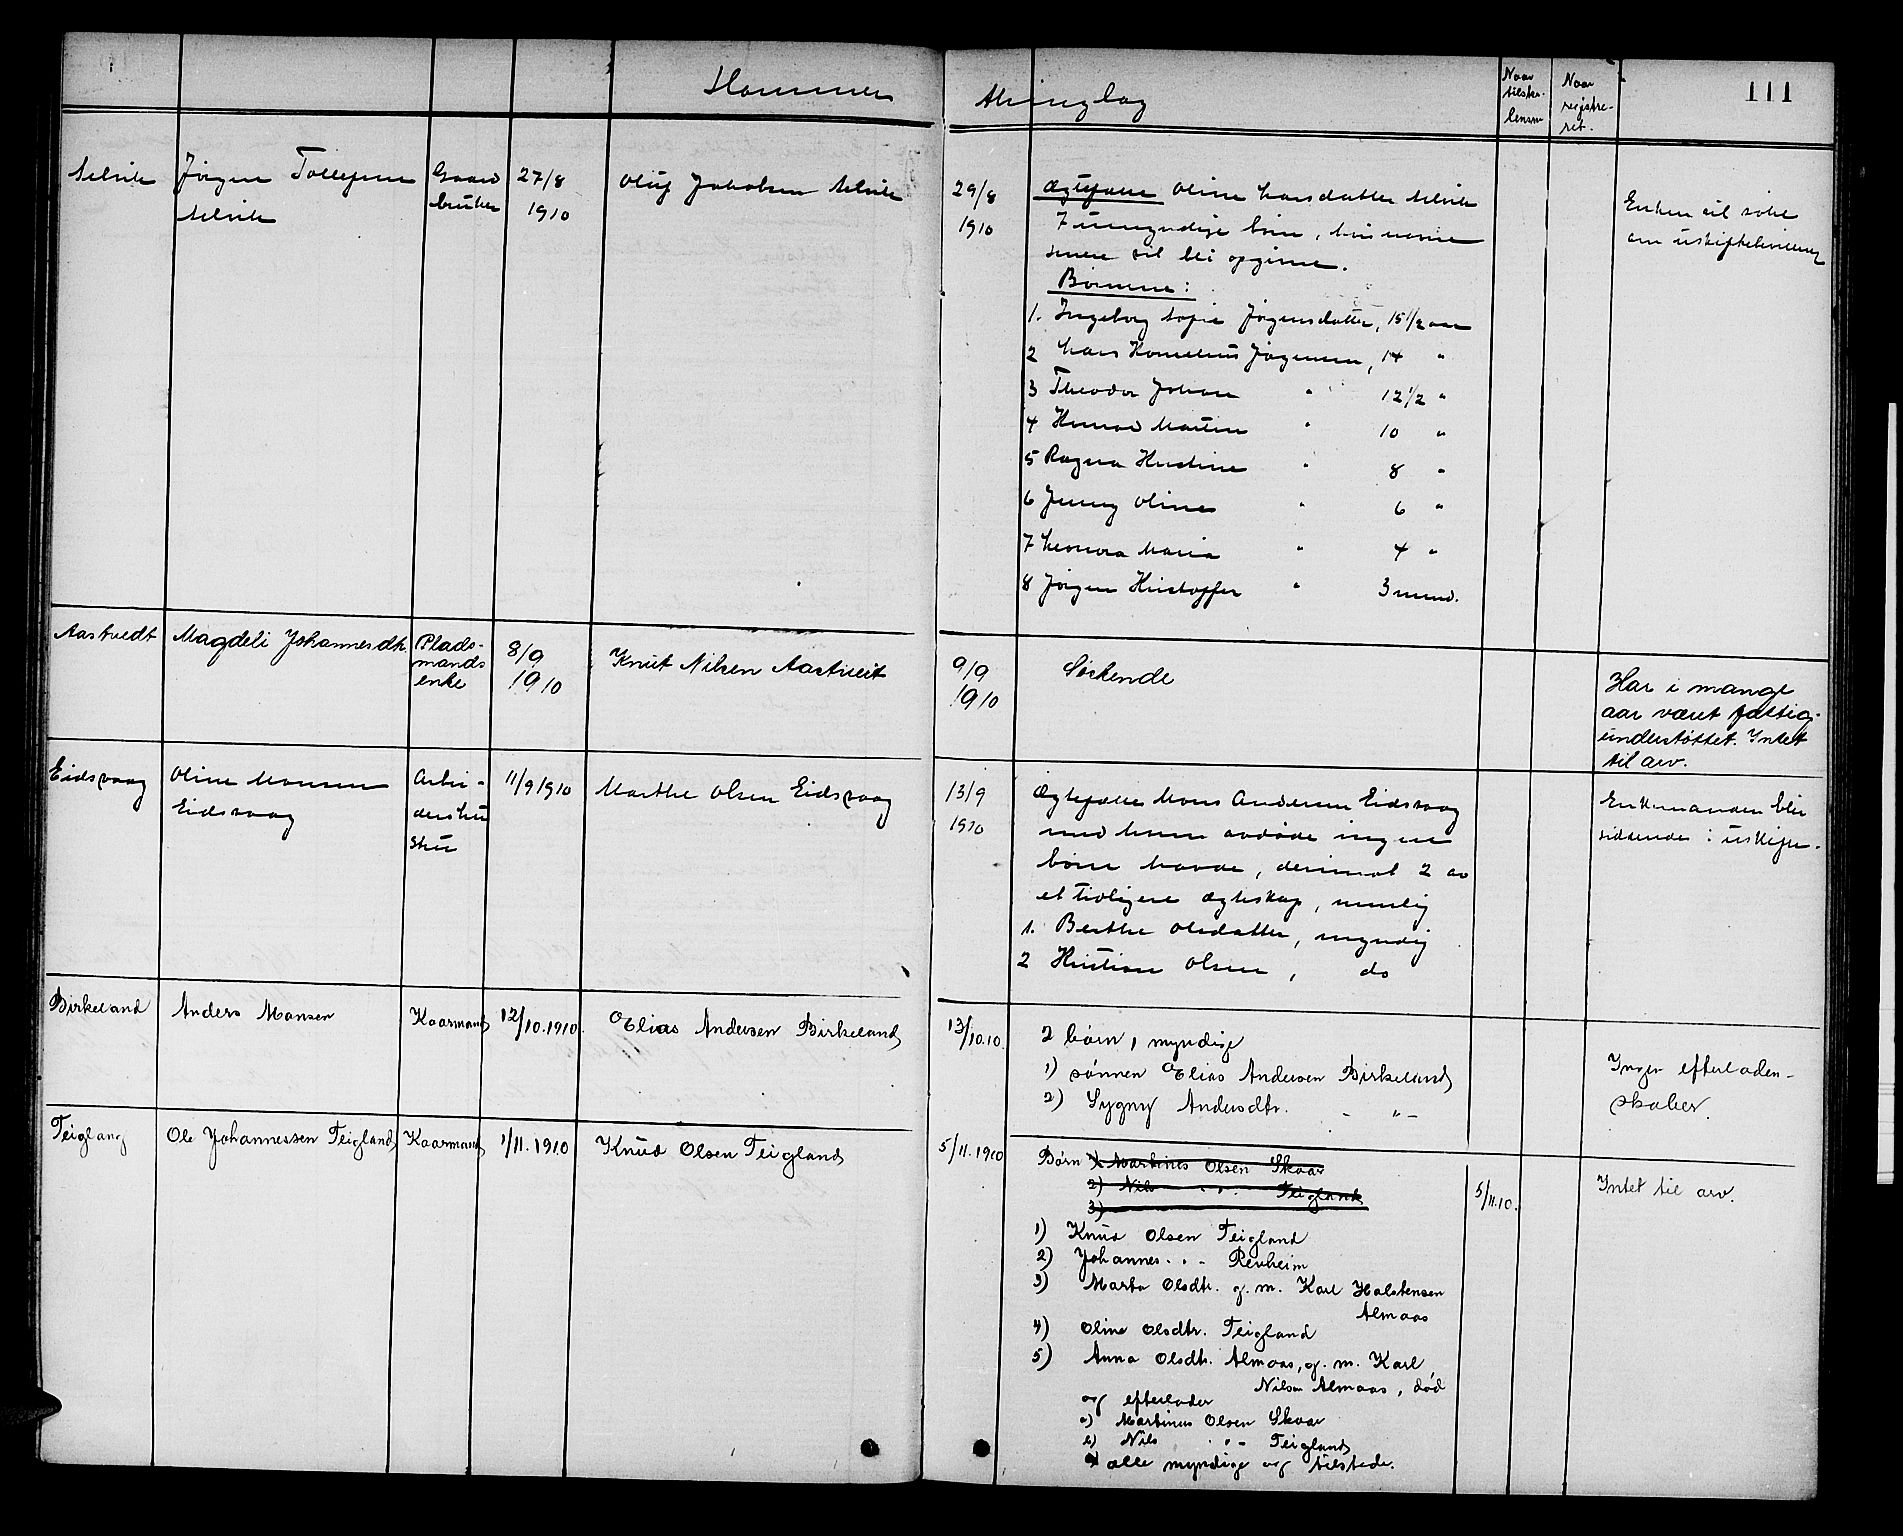 Hammer
thinglag
Naar
tilster-
Naar
registre-
ret.
111
Jørgen Tollefsen
Gaard
bruker
27/8
1910
Oluf Jakobsen
29/8
1910
Ægtefælle Oline Larsdatter
7 umyndige børn, hvis navne
senere vil bli opgivne.
Børnene:
1. Ingeborg Sofie Jørgensdatter, 15 1/2 aar
2 Lars Kornelius Jørgensen, 14 "
3 Theodor Johan " 12 1/2 "
4 Konrad Martin " 10 "
5 Ragna Kristine " 8 "
6 Jenny Oline " 6 "
7 Leonora Maria " 4 "
8 Jørgen Kristoffer " 3 mund.
Enken vil søke
om uskiftebevilling
Aastvedt
Magdeli Johannesdtr
Plads-
mands
enke
8/9
1910
Knut Nilsen Aastveit
9/9
1910
Søskende
Har i mange
aar været fattig-
understøttet. Intet
til arv.
Eidsvaag
Oline Monsen
Eidsvaag
Arbei-
derhu
stru
11/9 1910
Marthe Olsen Eidsvaag
13/9
1910
Ægtefælle Mons Andersen Eidsvaag
med hvem avdøde ingen
børn havde, derimot 2 av
et tidligere ægteskap, nemlig
1. Berthe Olsdatter, myndig
2 Kristian Olsen, do
Enkemanden blir
siddende i uskifte.
Birkeland
Anders Monsen
Kaarmand
12/10.1910.
Elias Andersen Birkeland
13/10.10.
2 børn, myndige
1) sønnen Elias Andersen Birkeland
2) Sygny Andersdtr. - " -
Ingen efterladen-
skaber.
Teigland
Ole Johannessen Teigland
Kaarmand
1/11.1910
Knud Olsen Teigland
5/11.1910
Børn 1) Martines Olsen Skaar
2) Nils " " Teigland
3)
1) Knud Olsen Teigland
2) Johannes " - Revheim
3) Marta Olsdtr. g. m. Karl Halstensen
Almaas
4) Oline Olsdtr. Teigland
5) Anna Olsdtr. Almaas, g. m. Karl
Nilsen Almaas, død
og efterlader
a) Martinus Olsen Skaar
b) Nils " - Teigland
alle myndige og tilstede.
5/11.10.
Intet til arv.